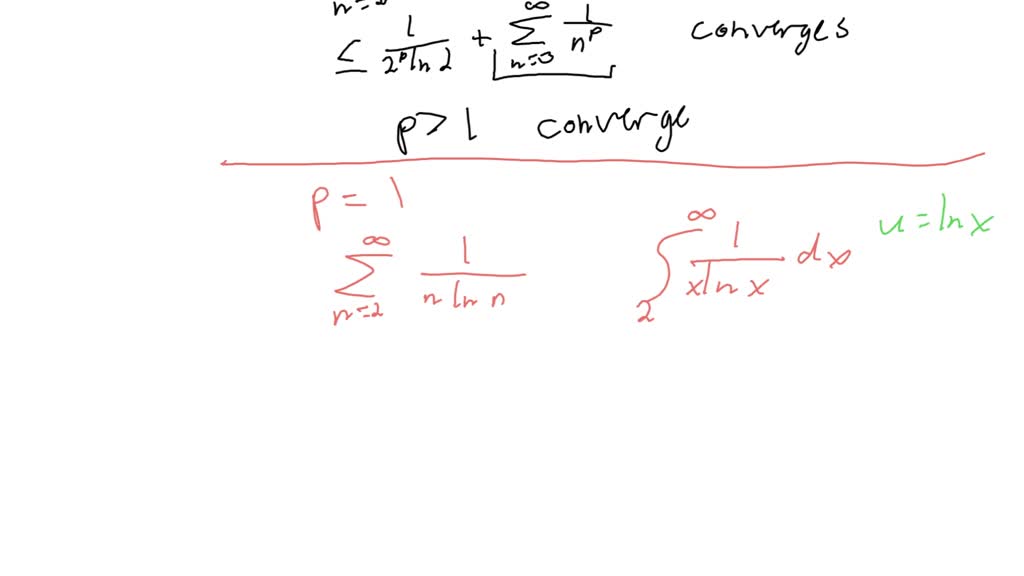 n=2
≤ 1/(2^p ln 2) + ∞∑n=3 1/n^p converges
p > 1 converge
p = 1
∞∑n=2 1/(n ln n) ∫_2^∞ 1/(x ln x) dx u = ln x